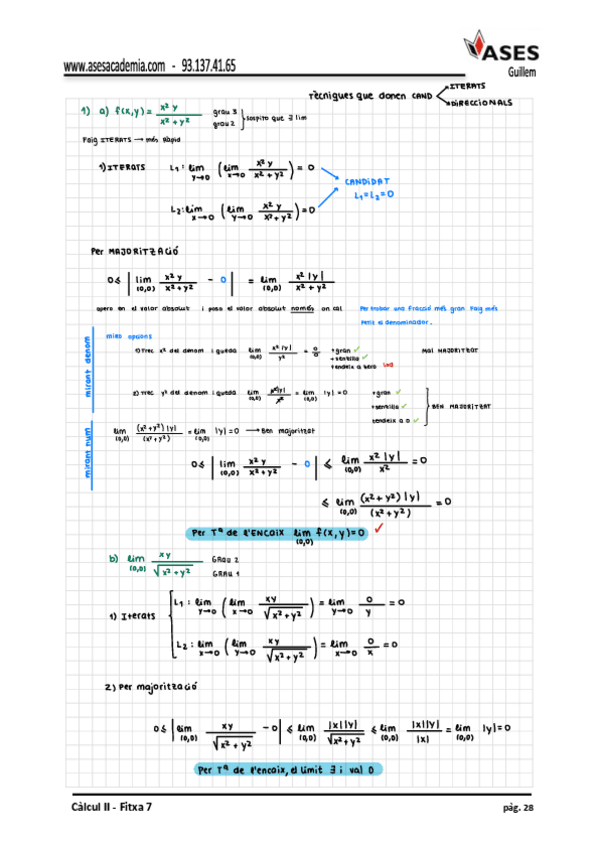 ASES
www.asesacademia.com - 93.137.41.65
Guillem
Tècniques que donen CAND
ITERATS
DIRECCIONALS
1) a) f(x,y) = x² y / x² + y²
grau 3
grau 2
sospito que ∃ lim
Faig ITERATS → més ràpid
1) ITERATS L₁: lim y→0 ( lim x→0 x² y / x² + y² ) = 0
CANDIDAT
L₁ = L₂ = 0
L₂: lim x→0 ( lim y→0 x² y / x² + y² ) = 0
Per MAJORITZACIÓ
0 ≤ | lim (0,0) x² y / x² + y² - 0 | = lim (0,0) x² |y| / x² + y²
opero en el valor absolut i poso el valor absolut només on cal
Per trobar una fracció més gran faig més petit el denominador.
mirant denom
mies opcions
1) Trec x² del denom i queda lim (0,0) x² |y| / y² = 0/0
+ gran ✓
+ sentilla ✓
tendeix a zero
Mal MAJORITZAT
2) Trec y² del denom i queda lim (0,0) x² |y| / x² = lim (0,0) |y| = 0
+ gran ✓
+ sentilla ✓
tendeix a 0 ✓
BEN MAJORITZAT
mirant num
lim (0,0) (x² + y²) |y| / (x² + y²) = lim (0,0) |y| = 0 → Ben majoritzat
0 ≤ | lim (0,0) x² y / x² + y² - 0 | ≤ lim (0,0) x² |y| / x² = 0
≤ lim (0,0) (x² + y²) |y| / (x² + y²) = 0
Per Tª de l'ENCAIX lim (0,0) f(x,y) = 0 ✓
b) lim (0,0) xy / √x² + y²
GRAU 2
GRAU 1
1) Iterats
L₁: lim y→0 ( lim x→0 xy / √x² + y² ) = lim y→0 0 / y = 0
L₂: lim x→0 ( lim y→0 xy / √x² + y² ) = lim x→0 0 / x = 0
2) Per majorització
0 ≤ | lim (0,0) xy / √x² + y² - 0 | ≤ lim (0,0) |x||y| / √x² + y² ≤ lim (0,0) |x||y| / |x| = lim (0,0) |y| = 0
Per Tª de l'encaix, el límit ∃ i val 0
Càlcul II - Fitxa 7
pàg. 28